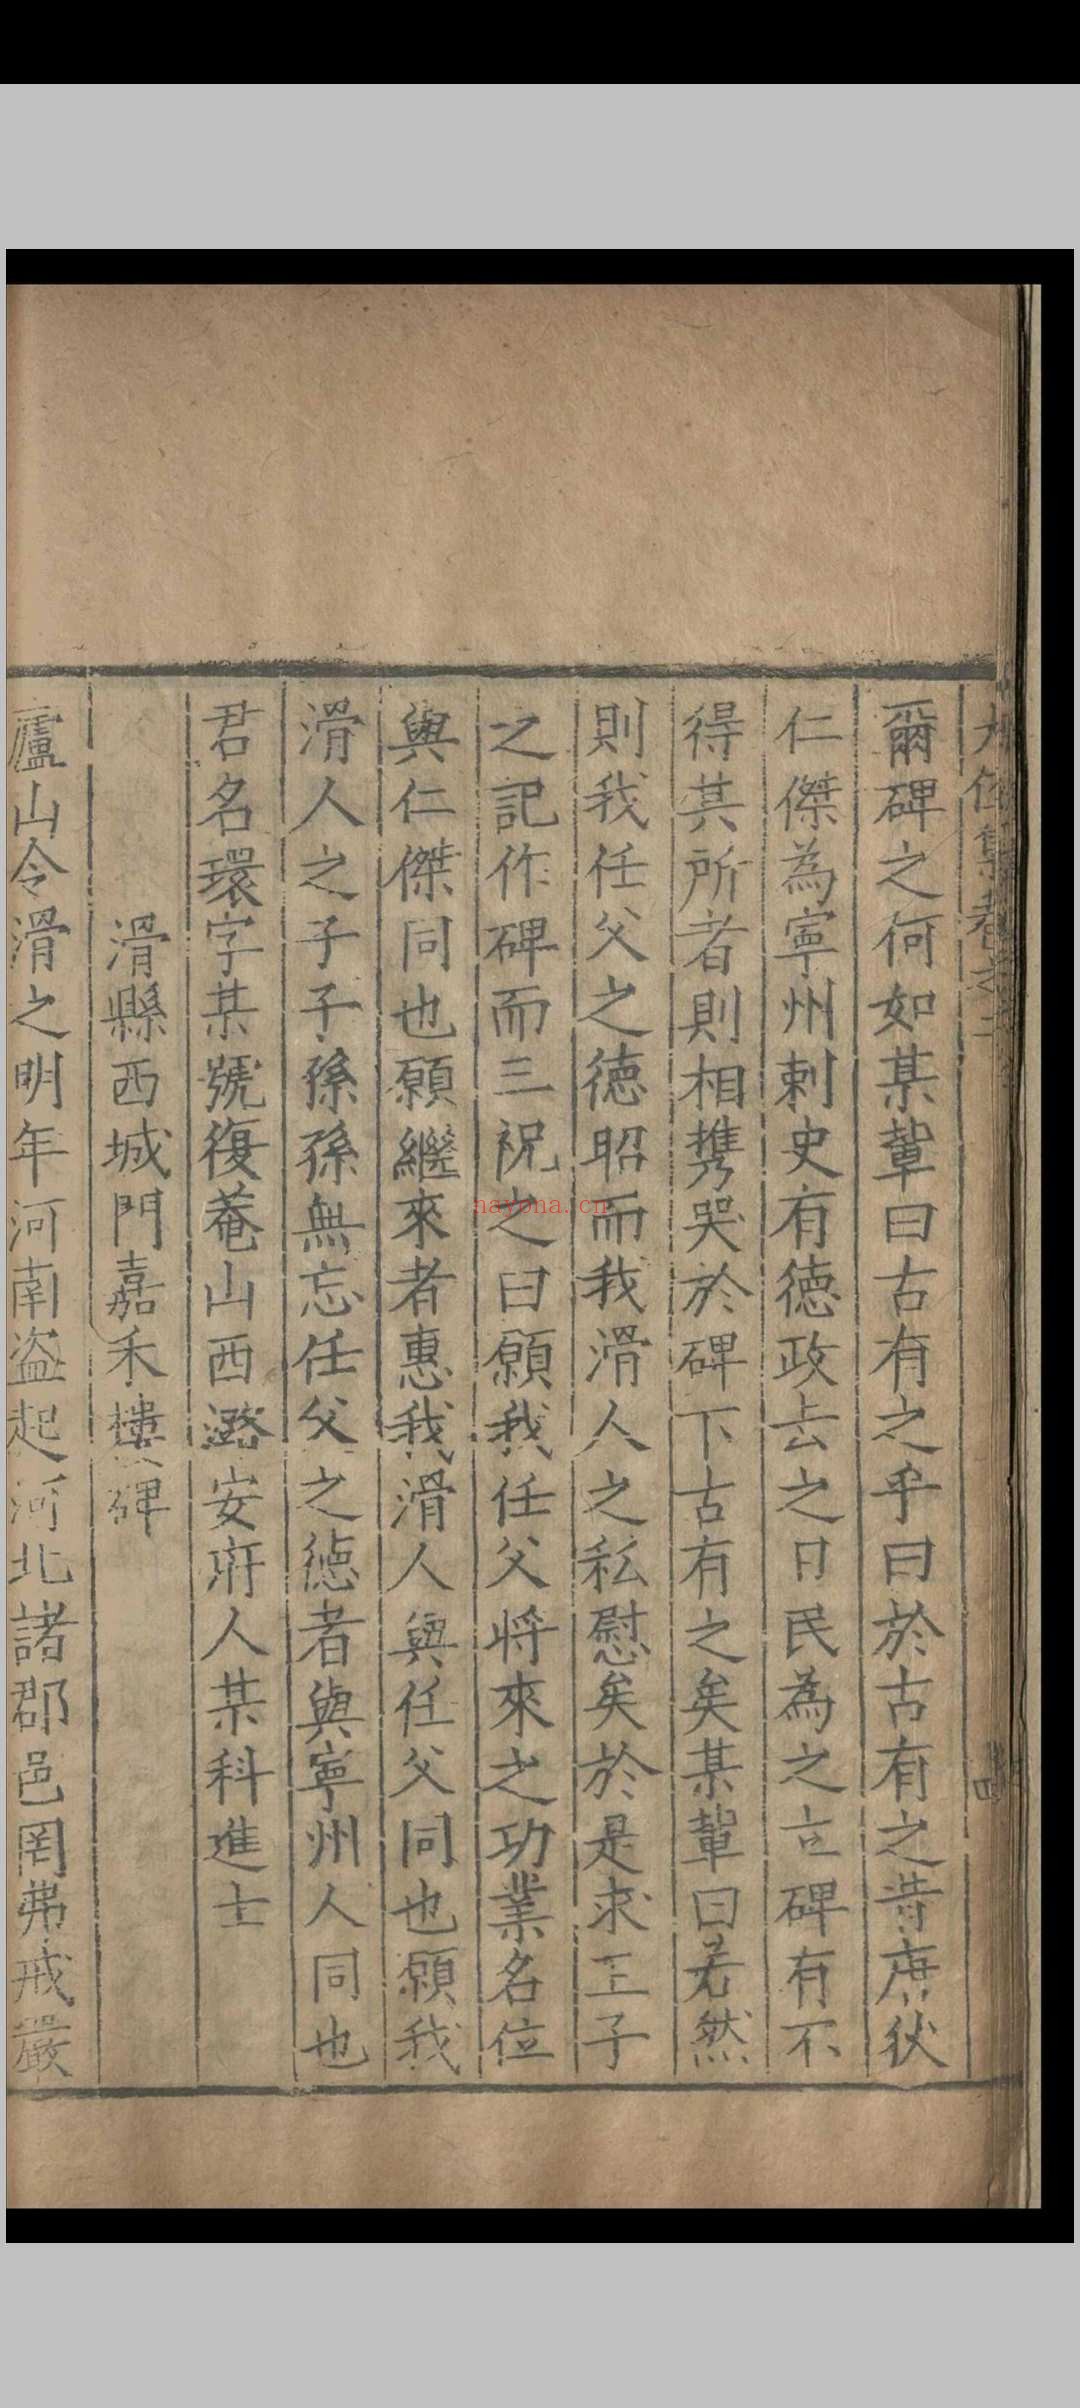 爾碑之何如某輩曰古有之乎曰於古有之昔唐狄
仁傑為寧州刺史有德政去之日民為之立碑有不
得其所者則相携哭於碑下古有之矣某輩曰若然
則我任父之德昭而我滑人之私慰矣於是求王子
之記作碑而三祝之曰願我任父將來之功業名位
與仁傑同也願繼來者惠我滑人與任父同也願我
滑人之子子孫孫無忘任父之德者與寧州人同也
君名環字某號復菴山西潞安府人某科進士
滑縣西城門嘉禾樓碑
廬山令滑之明年河南盜起河北諸郡邑罔弗戒嚴
nayona.cn